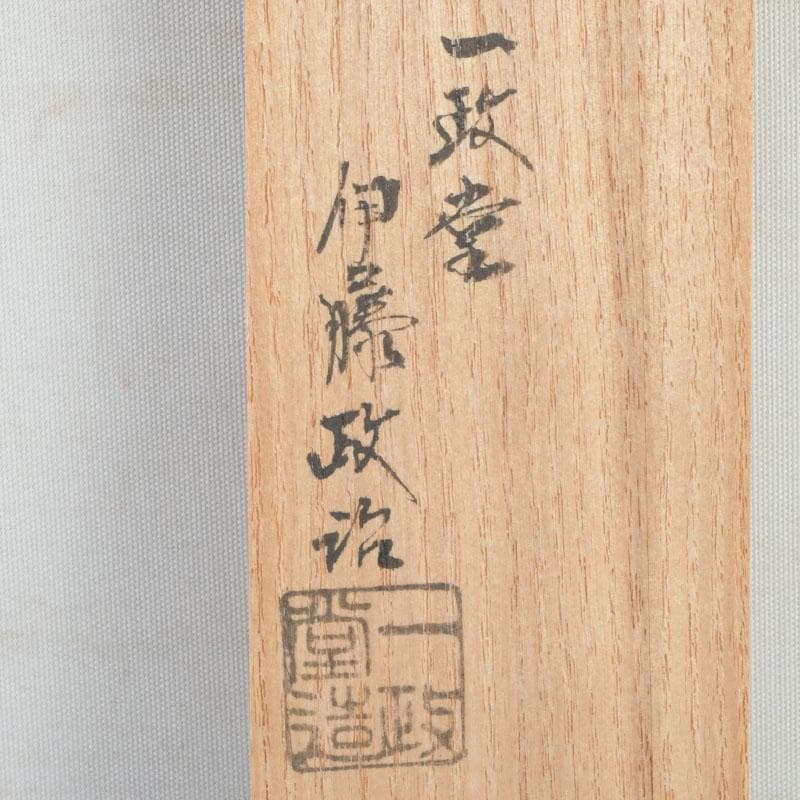 一政堂
伊藤政治
一政
堂造